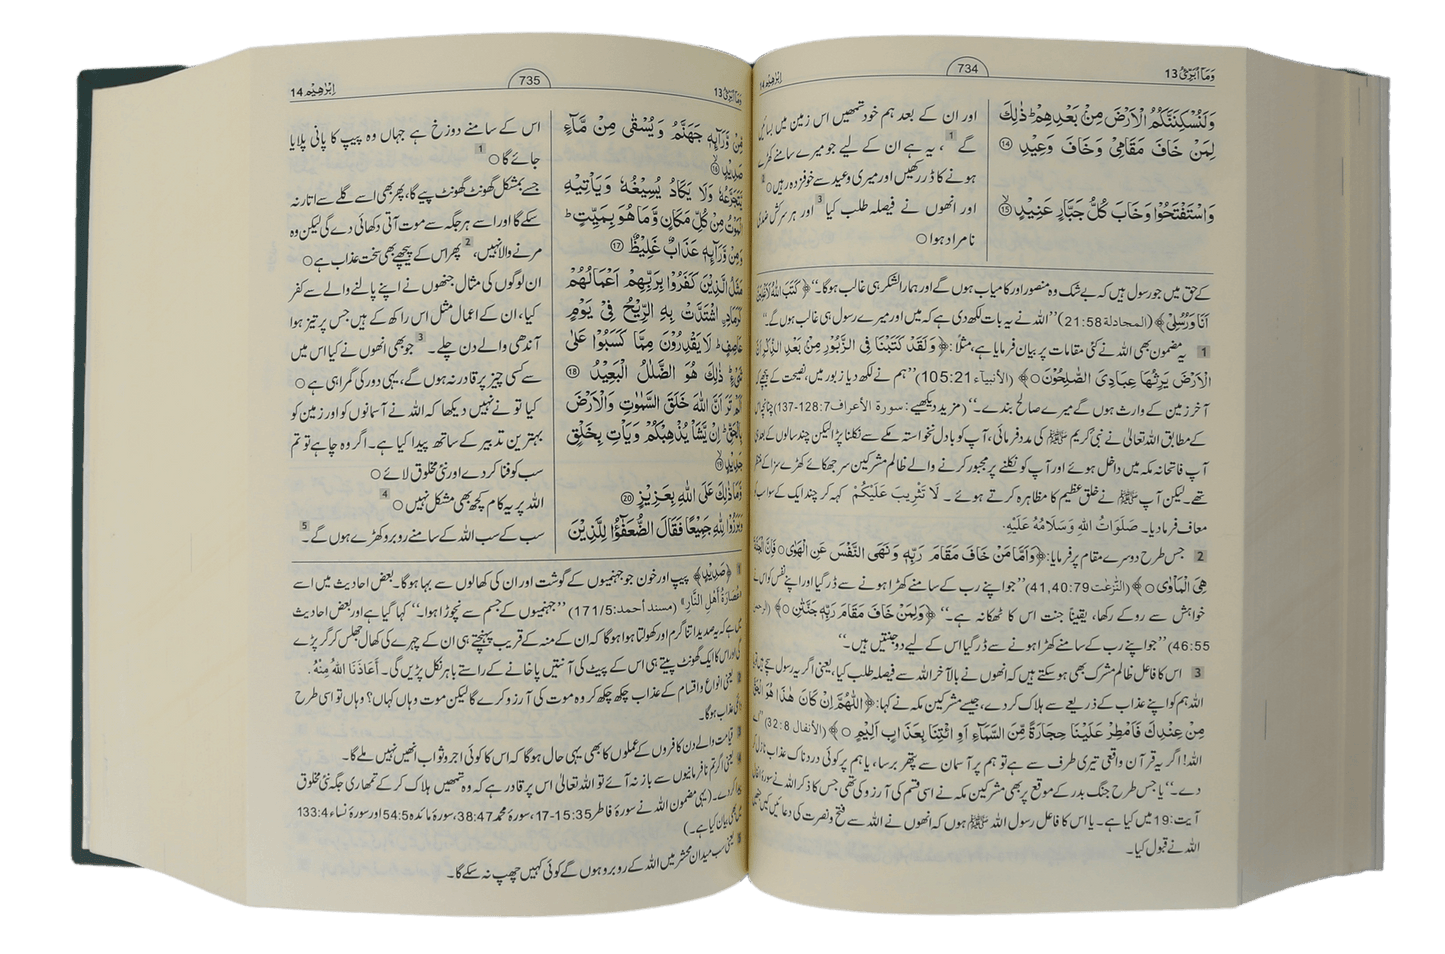 وَمَآ اُبَرِّئُ 13
734
اِبْرٰهِيْم 14
وَلَنُسْكِنَنَّكُمُ الْاَرْضَ مِنْۢ بَعْدِهِمْ ؕ ذٰلِكَ
لِمَنْ خَافَ مَقَامِيْ وَخَافَ وَعِيْدِ ۝14
وَاسْتَفْتَحُوْا وَخَابَ كُلُّ جَبَّارٍ عَنِيْدٍ ۝15
اور ان کے بعد ہم خود تمھیں اس زمین میں بسائیں
گے 1، یہ ہے ان کے لیے جو میرے سامنے کھڑے
ہونے کا ڈر رکھیں اور میری وعید سے خوفزدہ رہیں 2
اور انھوں نے فیصلہ طلب کیا 3 اور ہر سرکش ضدی
نامراد ہوا ○
کے حق میں جو رسول ہیں کہ بے شک وہ منصور اور کامیاب ہوں گے اور ہمارا لشکر ہی غالب ہوگا۔“ ﴿كَتَبَ اللّٰهُ لَاَغْلِبَنَّ
اَنَا وَرُسُلِيْ﴾ (المجادلة 21:58) ”اللہ نے یہ بات لکھ دی ہے کہ میں اور میرے رسول ہی غالب ہوں گے۔“
1 یہ مضمون بھی اللہ نے کئی مقامات پر بیان فرمایا ہے، مثلاً: ﴿وَلَقَدْ كَتَبْنَا فِي الزَّبُوْرِ مِنْۢ بَعْدِ الذِّكْرِ اَنَّ
الْاَرْضَ يَرِثُهَا عِبَادِيَ الصّٰلِحُوْنَ○﴾ (الأنبياء 105:21) ”ہم نے لکھ دیا زبور میں، نصیحت کے پیچھے کہ
آخر زمین کے وارث ہوں گے میرے صالح بندے۔“ (مزید دیکھیے: سورة الأعراف 137-128:7) چنانچہ اس
کے مطابق اللہ تعالیٰ نے نبیٔ کریم ﷺ کی مدد فرمائی، آپ کو بادل نخواستہ مکے سے نکلنا پڑا لیکن چند سالوں کے بعد ہی
آپ فاتحانہ مکہ میں داخل ہوئے اور آپ کو نکلنے پر مجبور کرنے والے ظالم مشرکین سر جھکائے کھڑے سزا کے منتظر
تھے۔ لیکن آپ ﷺ نے خلق عظیم کا مظاہرہ کرتے ہوئے۔ لَا تَثْرِيبَ عَلَيْكُمْ کہہ کر چند ایک کے سوا سب کو
معاف فرما دیا۔ صَلَوَاتُ اللهِ وَسَلَامُهُ عَلَيْهِ.
2 جس طرح دوسرے مقام پر فرمایا: ﴿وَاَمَّا مَنْ خَافَ مَقَامَ رَبِّهٖ وَنَهَى النَّفْسَ عَنِ الْهَوٰى○ فَاِنَّ الْجَنَّةَ
هِيَ الْمَاْوٰى○﴾ (النّٰزعٰت 41,40:79) ”جو اپنے رب کے سامنے کھڑا ہونے سے ڈر گیا اور اپنے نفس کو اس نے
خواہش سے روکے رکھا، یقیناً جنت اس کا ٹھکانہ ہے۔“ ﴿وَلِمَنْ خَافَ مَقَامَ رَبِّهٖ جَنَّتٰنِ○﴾ (الرحمٰن
46:55) ”جو اپنے رب کے سامنے کھڑا ہونے سے ڈر گیا اس کے لیے دو جنتیں ہیں۔“
3 اس کا فاعل ظالم مشرک بھی ہو سکتے ہیں کہ انھوں نے بالآخر اللہ سے فیصلہ طلب کیا، یعنی اگر یہ رسول سچے ہیں تو یا
اللہ ہم کو اپنے عذاب کے ذریعے سے ہلاک کر دے، جیسے مشرکین مکہ نے کہا: ﴿اللّٰهُمَّ اِنْ كَانَ هٰذَا هُوَ الْحَقَّ
مِنْ عِنْدِكَ فَاَمْطِرْ عَلَيْنَا حِجَارَةً مِّنَ السَّمَآءِ اَوِ ائْتِنَا بِعَذَابٍ اَلِيْمٍ○﴾ (الأنفال 32:8) ”اے
اللہ! اگر یہ قرآن واقعی تیری طرف سے ہے تو ہم پر آسمان سے پتھر برسا، یا ہم پر کوئی دردناک عذاب نازل کر
دے۔“ یا جس طرح جنگ بدر کے موقع پر بھی مشرکین مکہ نے اسی قسم کی آرزو کی تھی جس کا ذکر اللہ نے سورۂ انفال
آیت:19 میں کیا ہے۔ یا اس کا فاعل رسول اللہ ﷺ ہوں کہ انھوں نے اللہ سے فتح و نصرت کی دعائیں کیں جنھیں
اللہ نے قبول کیا۔
وَمَآ اُبَرِّئُ 13
735
اِبْرٰهِيْم 14
مِّنْ وَّرَآىِٕهٖ جَهَنَّمُ وَيُسْقٰى مِنْ مَّآءٍ
صَدِيْدٍ ۝16
يَّتَجَرَّعُهٗ وَلَا يَكَادُ يُسِيْغُهٗ وَيَاْتِيْهِ
الْمَوْتُ مِنْ كُلِّ مَكَانٍ وَّمَا هُوَ بِمَيِّتٍ ؕ
وَمِنْ وَّرَآىِٕهٖ عَذَابٌ غَلِيْظٌ ۝17
مَثَلُ الَّذِيْنَ كَفَرُوْا بِرَبِّهِمْ اَعْمَالُهُمْ
كَرَمَادِ اِۨشْتَدَّتْ بِهِ الرِّيْحُ فِيْ يَوْمٍ
عَاصِفٍ ؕ لَا يَقْدِرُوْنَ مِمَّا كَسَبُوْا عَلٰى
شَيْءٍ ؕ ذٰلِكَ هُوَ الضَّلٰلُ الْبَعِيْدُ ۝18
اَلَمْ تَرَ اَنَّ اللّٰهَ خَلَقَ السَّمٰوٰتِ وَالْاَرْضَ
بِالْحَقِّ ؕ اِنْ يَّشَاْ يُذْهِبْكُمْ وَيَاْتِ بِخَلْقٍ
جَدِيْدٍ ۝19
وَّمَا ذٰلِكَ عَلَى اللّٰهِ بِعَزِيْزٍ ۝20
وَبَرَزُوْا لِلّٰهِ جَمِيْعًا فَقَالَ الضُّعَفٰٓؤُا لِلَّذِيْنَ
اس کے سامنے دوزخ ہے جہاں وہ پیپ کا پانی پلایا
جائے گا ○ 1
جسے بمشکل گھونٹ گھونٹ پیے گا، پھر بھی اسے گلے سے اتار نہ
سکے گا اور اسے ہر جگہ سے موت آتی دکھائی دے گی لیکن وہ
مرنے والا نہیں، 2 پھر اس کے پیچھے بھی سخت عذاب ہے ○
ان لوگوں کی مثال جنھوں نے اپنے پالنے والے سے کفر
کیا، ان کے اعمال مثل اس راکھ کے ہیں جس پر تیز ہوا
آندھی والے دن چلے۔ 3 جو بھی انھوں نے کیا اس میں
سے کسی چیز پر قادر نہ ہوں گے، یہی دور کی گمراہی ہے ○
کیا تو نے نہیں دیکھا کہ اللہ نے آسمانوں کو اور زمین کو
بہترین تدبیر کے ساتھ پیدا کیا ہے۔ اگر وہ چاہے تو تم
سب کو فنا کر دے اور نئی مخلوق لائے ○
اللہ پر یہ کام کچھ بھی مشکل نہیں ○ 4
سب کے سب اللہ کے سامنے روبرو کھڑے ہوں گے۔ 5
1 ﴿صَدِيْدٍ﴾ پیپ اور خون جو جہنمیوں کے گوشت اور ان کی کھالوں سے بہا ہوگا۔ بعض احادیث میں اسے
”عُصَارَةُ أَهْلِ النَّارِ“ (مسند أحمد: 171/5) ”جہنمیوں کے جسم سے نچوڑا ہوا۔“ کہا گیا ہے اور بعض احادیث
میں ہے کہ یہ صدید اتنا گرم اور کھولتا ہوا ہوگا کہ ان کے منہ کے قریب پہنچتے ہی ان کے چہرے کی کھال جھلس کر گر پڑے
گی اور اس کا ایک گھونٹ پیتے ہی اس کے پیٹ کی آنتیں پاخانے کے راستے باہر نکل پڑیں گی۔ أَعَاذَنَا اللهُ مِنْهُ.
2 یعنی انواع و اقسام کے عذاب چکھ چکھ کر وہ موت کی آرزو کرے گا لیکن موت وہاں کہاں؟ وہاں تو اسی طرح
دائمی عذاب ہوگا۔
3 قیامت والے دن کافروں کے عملوں کا بھی یہی حال ہوگا کہ اس کا کوئی اجر و ثواب انھیں نہیں ملے گا۔
4 یعنی اگر تم نافرمانیوں سے باز نہ آئے تو اللہ تعالیٰ اس پر قادر ہے کہ وہ تمھیں ہلاک کر کے تمھاری جگہ نئی مخلوق
پیدا کر دے۔ (یہی مضمون اللہ نے سورۂ فاطر 17-15:35، سورۂ محمد 38:47، سورۂ مائدہ 54:5 اور سورۂ نساء 133:4
میں بھی بیان کیا ہے۔)
5 یعنی سب میدان محشر میں اللہ کے روبرو ہوں گے کوئی کہیں چھپ نہ سکے گا۔